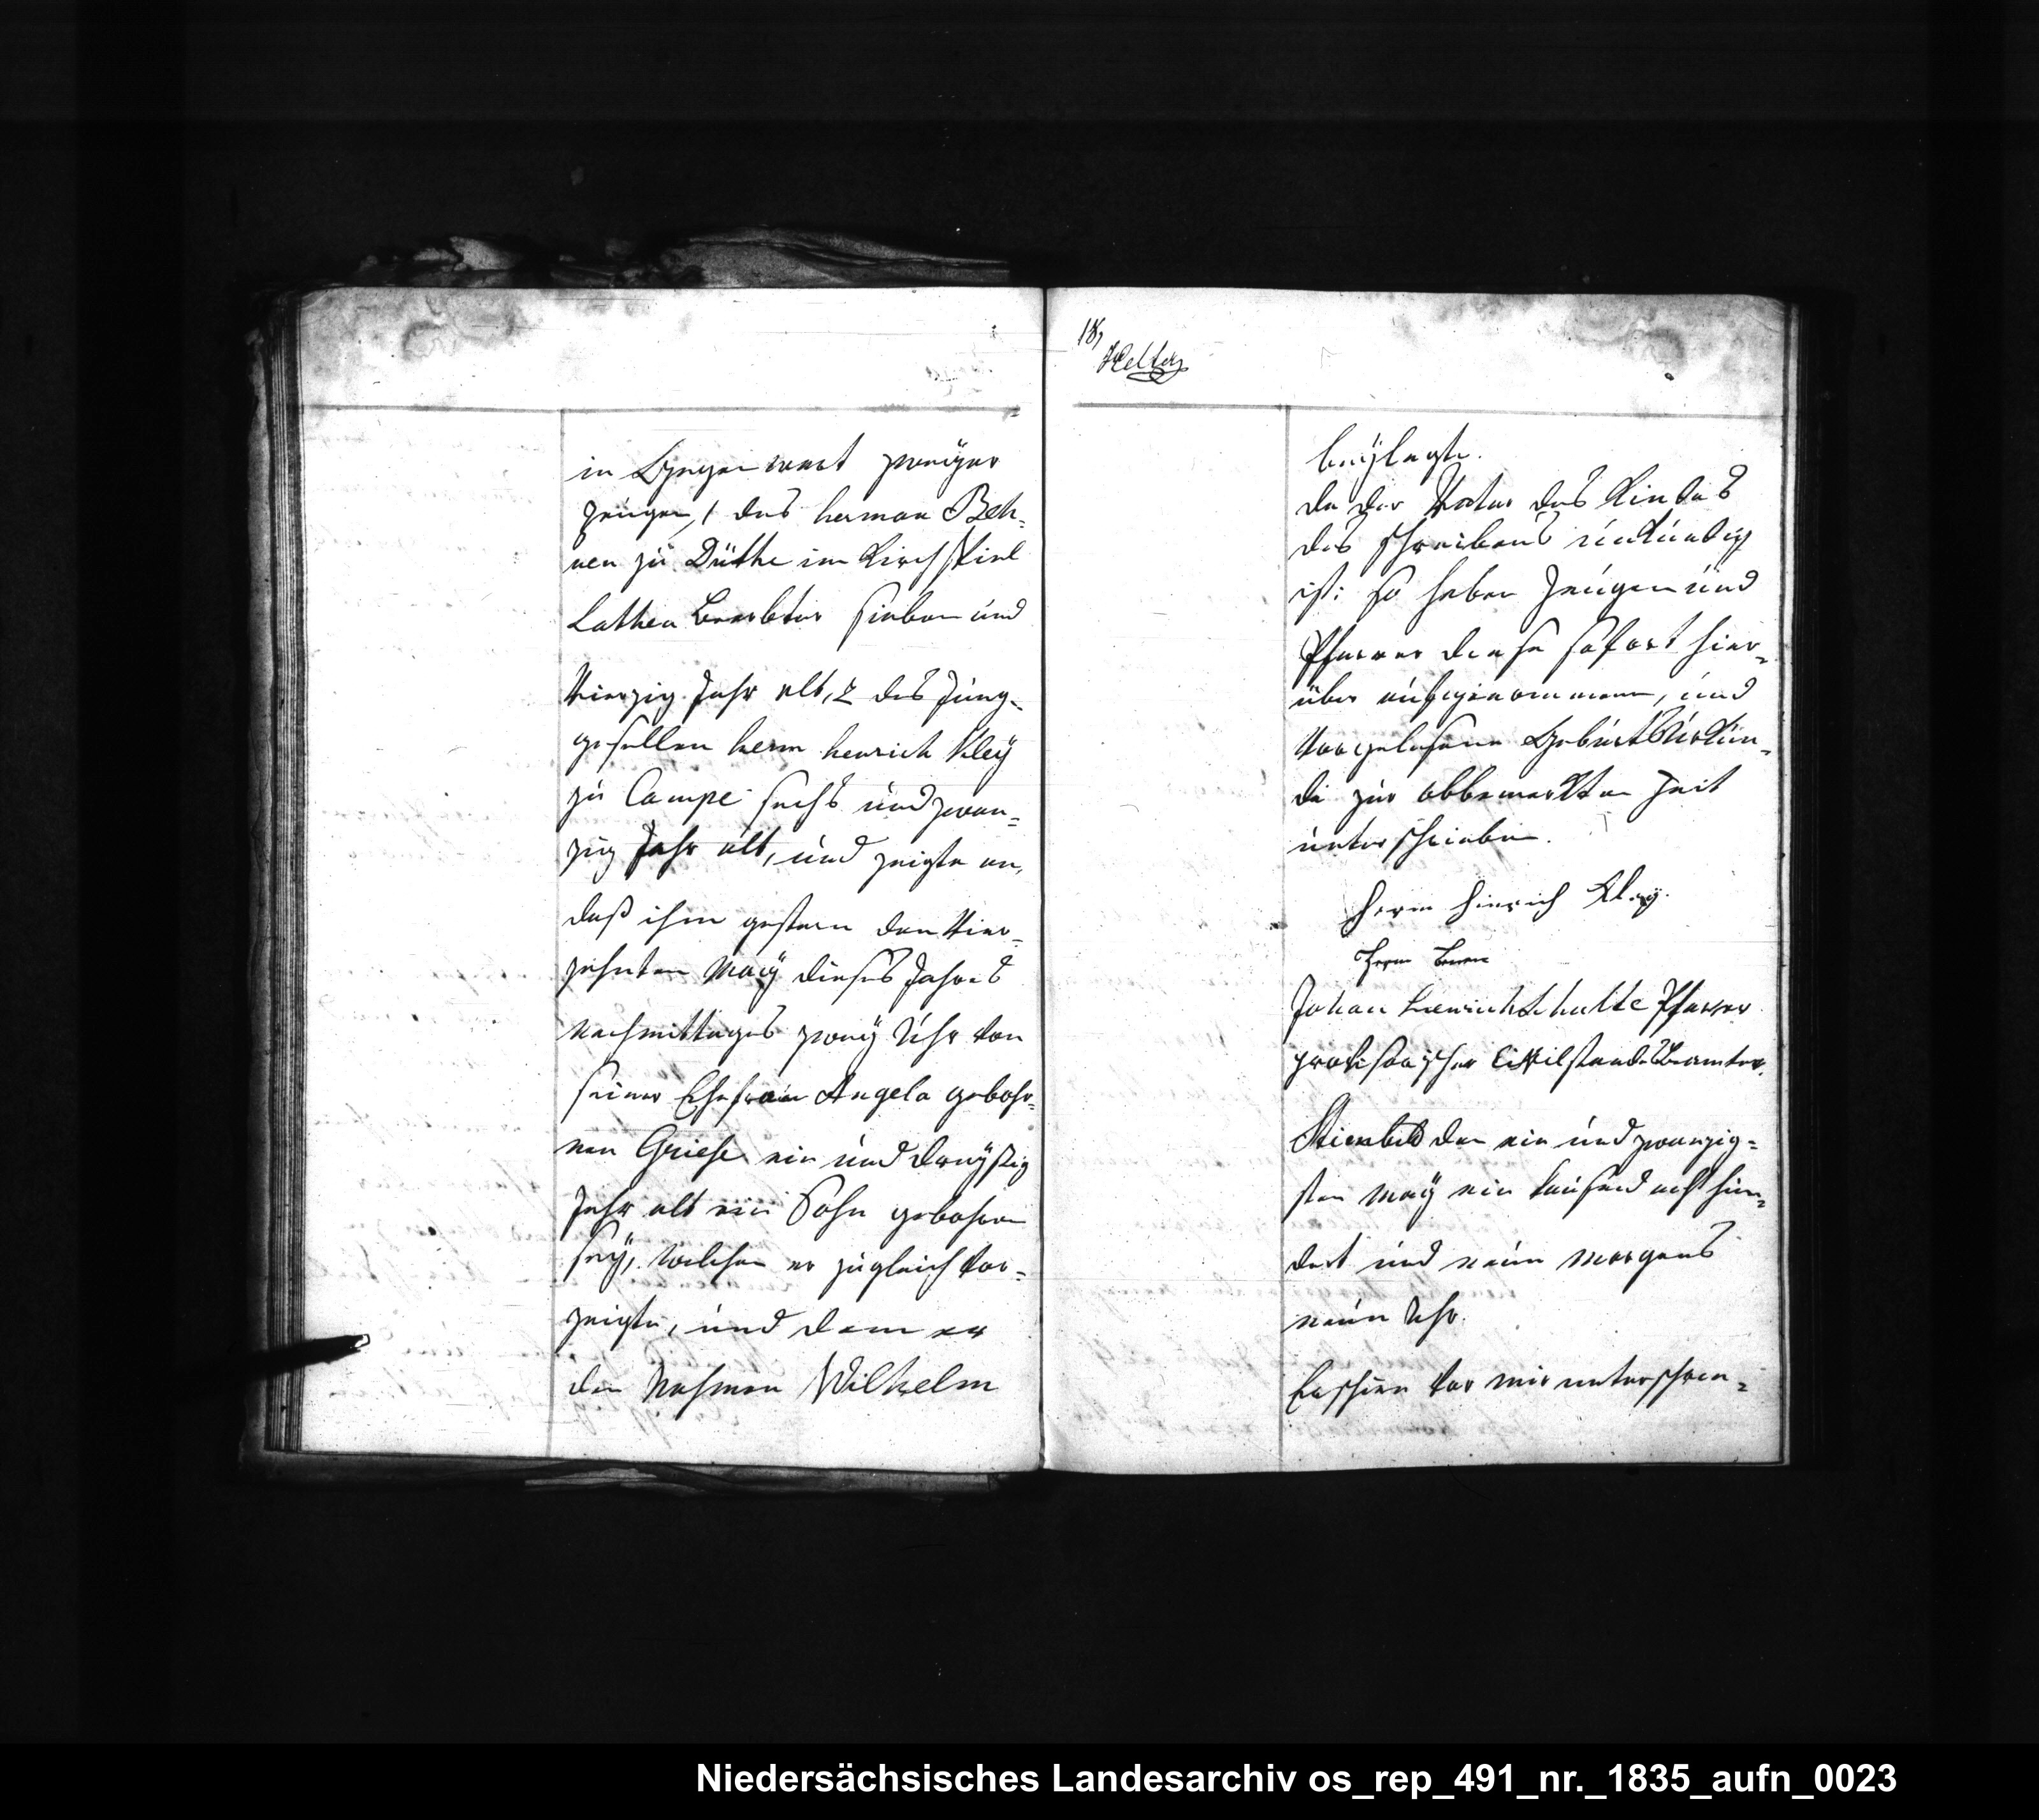 in Gegenwart zweÿer
Zeugen, 1 des herman Beh-
nen zu Düthe im Kirchspiel
Lathen Beerbter sieben und
Vierzig Jahr alt, 2 des Jung-
gesellen herm henrich Kleÿ
zu Campe sechs und zwan-
zig Jahr alt, und zeigte an,
daß ihm gestern den Vier-
zehnten Maÿ dieses Jahres
Nachmittages zweÿ Uhr von
seiner Ehefrau Angela gebohr-
nen Griese ein und dreÿßig
Jahr alt ein Sohn gebohren
seÿ, welchen er zugleich vor-
zeigte, und dem er
den Nahmen Wilhelm
18,
beÿlegte.
da der Vater des Kindes
des schreibens unkundig
ist: so haben Zeugen und
Pfarrer diese sofort hier-
über aufgenommene, und
Vorgelesene Geburtsurkun-
de zur obbemerkten Zeit
unterschrieben.
Herm Hinrich Kleÿ.
Herm Benen
Johan Henrich Schulte Pfarrer
provisorischer Civilstandesbeamter.
Steinbild den ein und zwanzig-
sten Maÿ ein tausend acht hun-
dert und neun Morgens
neun Uhr.
Erschien vor mir unterschrie-
Niedersächsisches Landesarchiv os_rep_491_nr._1835_aufn_0023